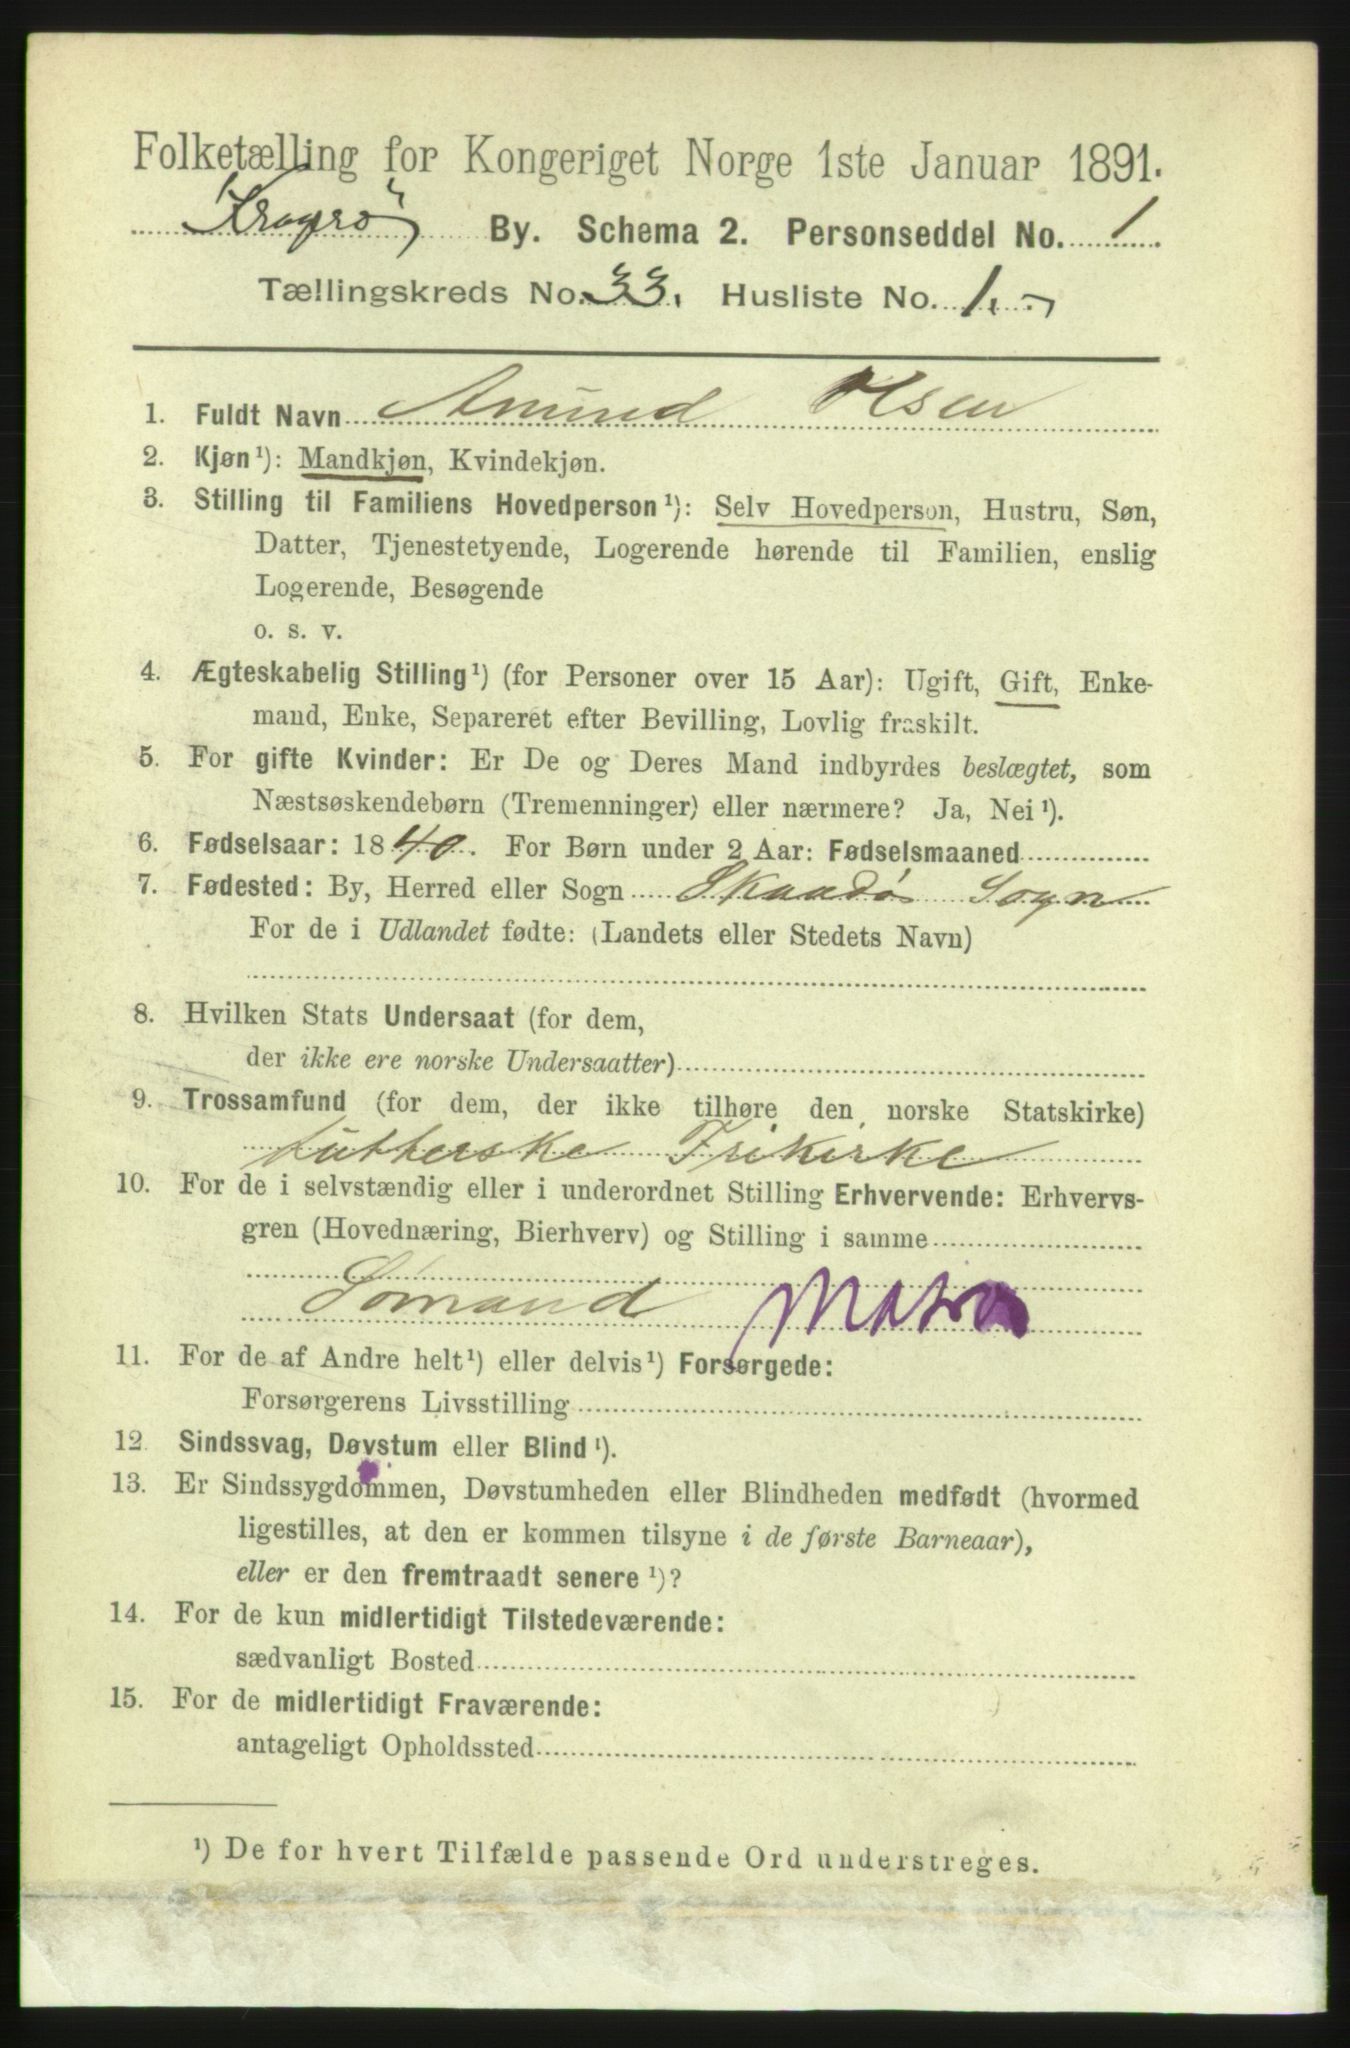 Folketælling for Kongeriget Norge 1ste Januar 1891.
Kragerø By. Schema 2. Personseddel No. 1
Tællingskreds No. 33. Husliste No. 1.
1. Fuldt Navn Amund Olsen
2. Kjøn ¹): Mandkjøn, Kvindekjøn.
3. Stilling til Familiens Hovedperson ¹): Selv Hovedperson, Hustru, Søn,
Datter, Tjenestetyende, Logerende hørende til Familien, enslig
Logerende, Besøgende
o. s. v.
4. Ægteskabelig Stilling ¹) (for Personer over 15 Aar): Ugift, Gift, Enke-
mand, Enke, Separeret efter Bevilling, Lovlig fraskilt.
5. For gifte Kvinder: Er De og Deres Mand indbyrdes beslægtet, som
Næstsøskendebørn (Tremenninger) eller nærmere? Ja, Nei ¹).
6. Fødselsaar: 1840. For Børn under 2 Aar: Fødselsmaaned
7. Fødested: By, Herred eller Sogn Skaadø Sogn
For de i Udlandet fødte: (Landets eller Stedets Navn)
8. Hvilken Stats Undersaat (for dem,
der ikke ere norske Undersaatter)
9. Trossamfund (for dem, der ikke tilhøre den norske Statskirke)
Lutherske Frikirke
10. For de i selvstændig eller i underordnet Stilling Erhvervende: Erhvervs-
gren (Hovednæring, Bierhverv) og Stilling i samme
Sømand Matros
11. For de af Andre helt ¹) eller delvis ¹) Forsørgede:
Forsørgerens Livsstilling
12 Sindssvag, Døvstum eller Blind ¹).
13. Er Sindssygdommen, Døvstumheden eller Blindheden medfødt (hvormed
ligestilles, at den er kommen tilsyne i de første Barneaar),
eller er den fremtraadt senere ¹)?
14. For de kun midlertidigt Tilstedeværende:
sædvanligt Bosted
15. For de midlertidigt Fraværende:
antageligt Opholdssted
¹) De for hvert Tilfælde passende Ord understreges.